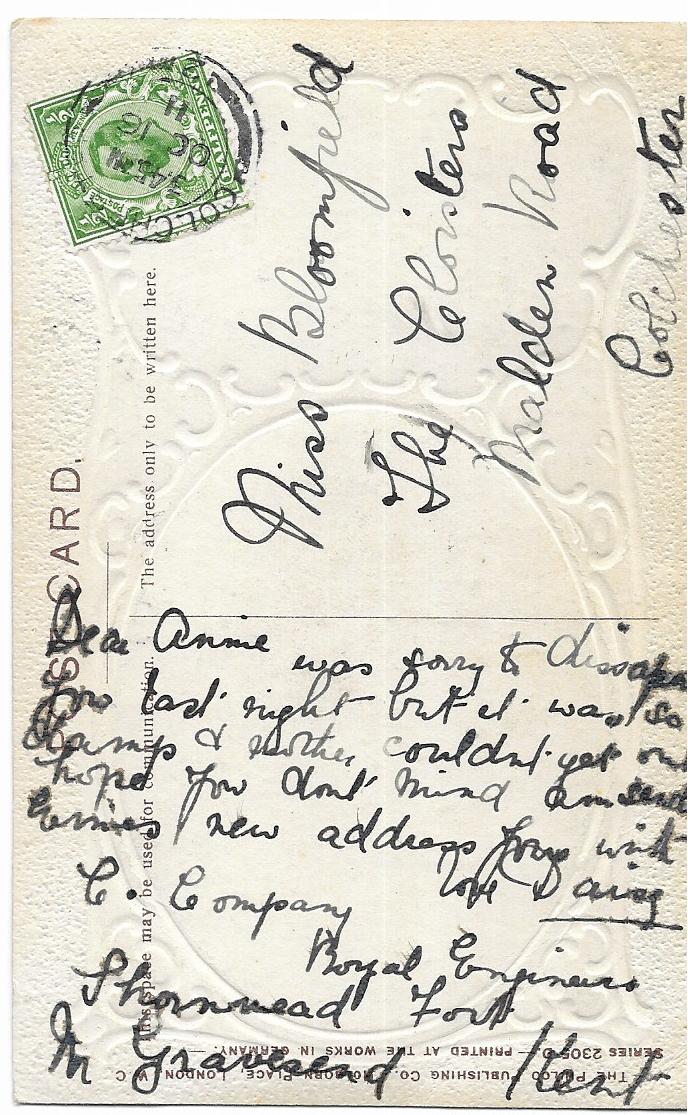 POST CARD.
The address only to be written here.
This space may be used for communication.
Miss Bloomfield
The Cloisters
Malden Road
Colchester
COLC
3.45 PM
OC 16
11
POSTAGE
Dear Annie
was sorry to dissapo
you last night but it was so
damp & mother couldnt get out
hope you dont mind am send
Ernies new address yours with
love Daisy
C. Company
Royal Engineers
Shornmead Fort
Nr Gravesend Kent
THE PHILCO PUBLISHING CO. HOLBORN PLACE, LONDON, W.C.
SERIES 2305 D — PRINTED AT THE WORKS IN GERMANY. —